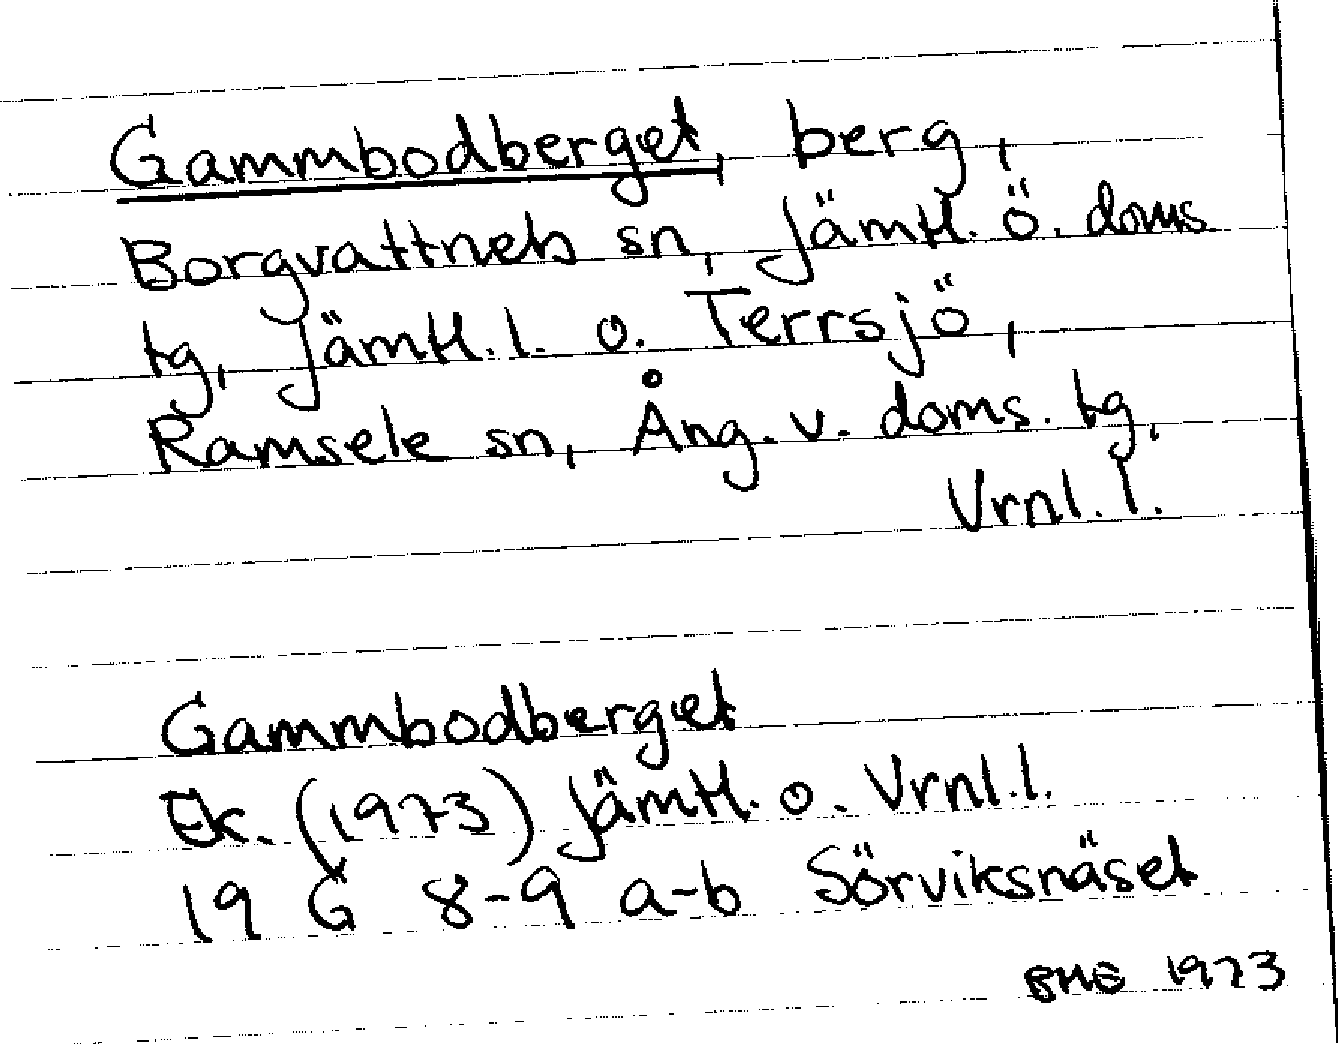 Gammbodberget, berg,
Borgvattnets sn, Jämtl. ö. doms
tg, Jämtl. l. o. Terrsjö,
Ramsele sn, Ång. v. doms. tg,
Vrnl. l.
Gammbodberget
Ek. (1973) Jämtl. o. Vrnl. l.
19 G 8-9 a-b Sörviksnäset
1973